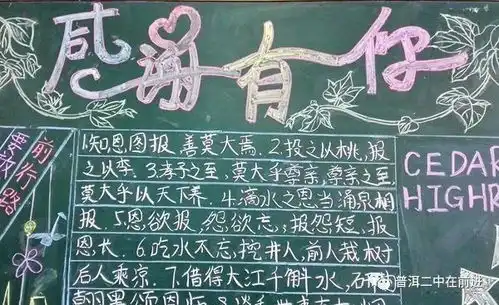 感谢有你
前行路
要放
1.知恩图报,善莫大焉.2.投之以桃,报
之以李.3.孝子之至,莫大乎尊亲,尊亲之至
莫大乎以天下养.4.滴水之恩,当涌泉相
报.5.恩欲报,怨欲忘,报怨短,报
恩长.6.吃水不忘,挖井人,前人栽树
后人乘凉.7.借得大江千斛水,研
翰墨颂恩师.
CEDAR
HIGHR
普洱二中在前进